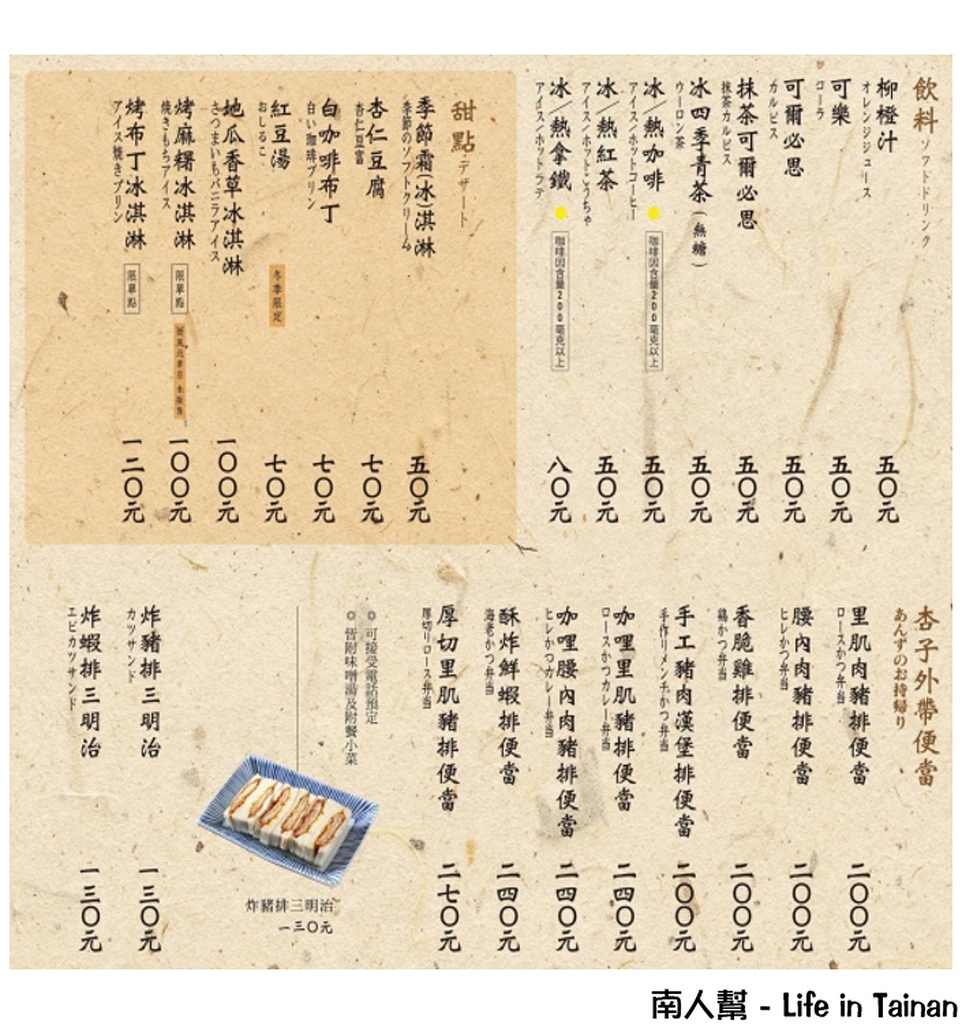 飲料 ソフトドリンク
柳橙汁 五〇元
オレンジジュース
可樂 五〇元
コーラ
可爾必思 五〇元
カルピス
抹茶可爾必思 五〇元
抹茶カルピス
冰四季青茶(無糖) 五〇元
ウーロン茶
冰/熱咖啡 咖啡因含量200毫克以上 五〇元
アイス/ホットコーヒー
冰/熱紅茶 五〇元
アイス/ホットこうちゃ
冰/熱拿鐵 咖啡因含量200毫克以上 八〇元
アイス/ホットラテ
甜點 デザート
季節霜(冰)淇淋 五〇元
季節のソフトクリーム
杏仁豆腐 七〇元
杏仁豆富
白咖啡布丁 七〇元
白い珈琲プリン
紅豆湯 冬季限定 七〇元
おしるこ
地瓜香草冰淇淋 一〇〇元
さつまいもバニラアイス
烤麻糬冰淇淋 限單點 一〇〇元
焼きもちアイス
烤布丁冰淇淋 限單點 一二〇元
アイス焼きプリン
杏子外帶便當
あんずのお持帰り
里肌肉豬排便當 二〇〇元
ロースかつ弁当
腰內肉豬排便當 二〇〇元
ヒレかつ弁当
香脆雞排便當 二〇〇元
鶏かつ弁当
手工豬肉漢堡排便當 二〇〇元
手作りメンチかつ弁当
咖哩里肌豬排便當 二四〇元
ロースかつカレー弁当
咖哩腰內肉豬排便當 二四〇元
ヒレかつカレー弁当
酥炸鮮蝦排便當 二四〇元
海老かつ弁当
厚切里肌豬排便當 二七〇元
厚切りロース弁当
◎ 可接受電話預定
◎ 皆附味噌湯及附餐小菜
炸豬排三明治
一三〇元
炸豬排三明治 一三〇元
カツサンド
炸蝦排三明治 一三〇元
エビカツサンド
南人幫 - Life in Tainan